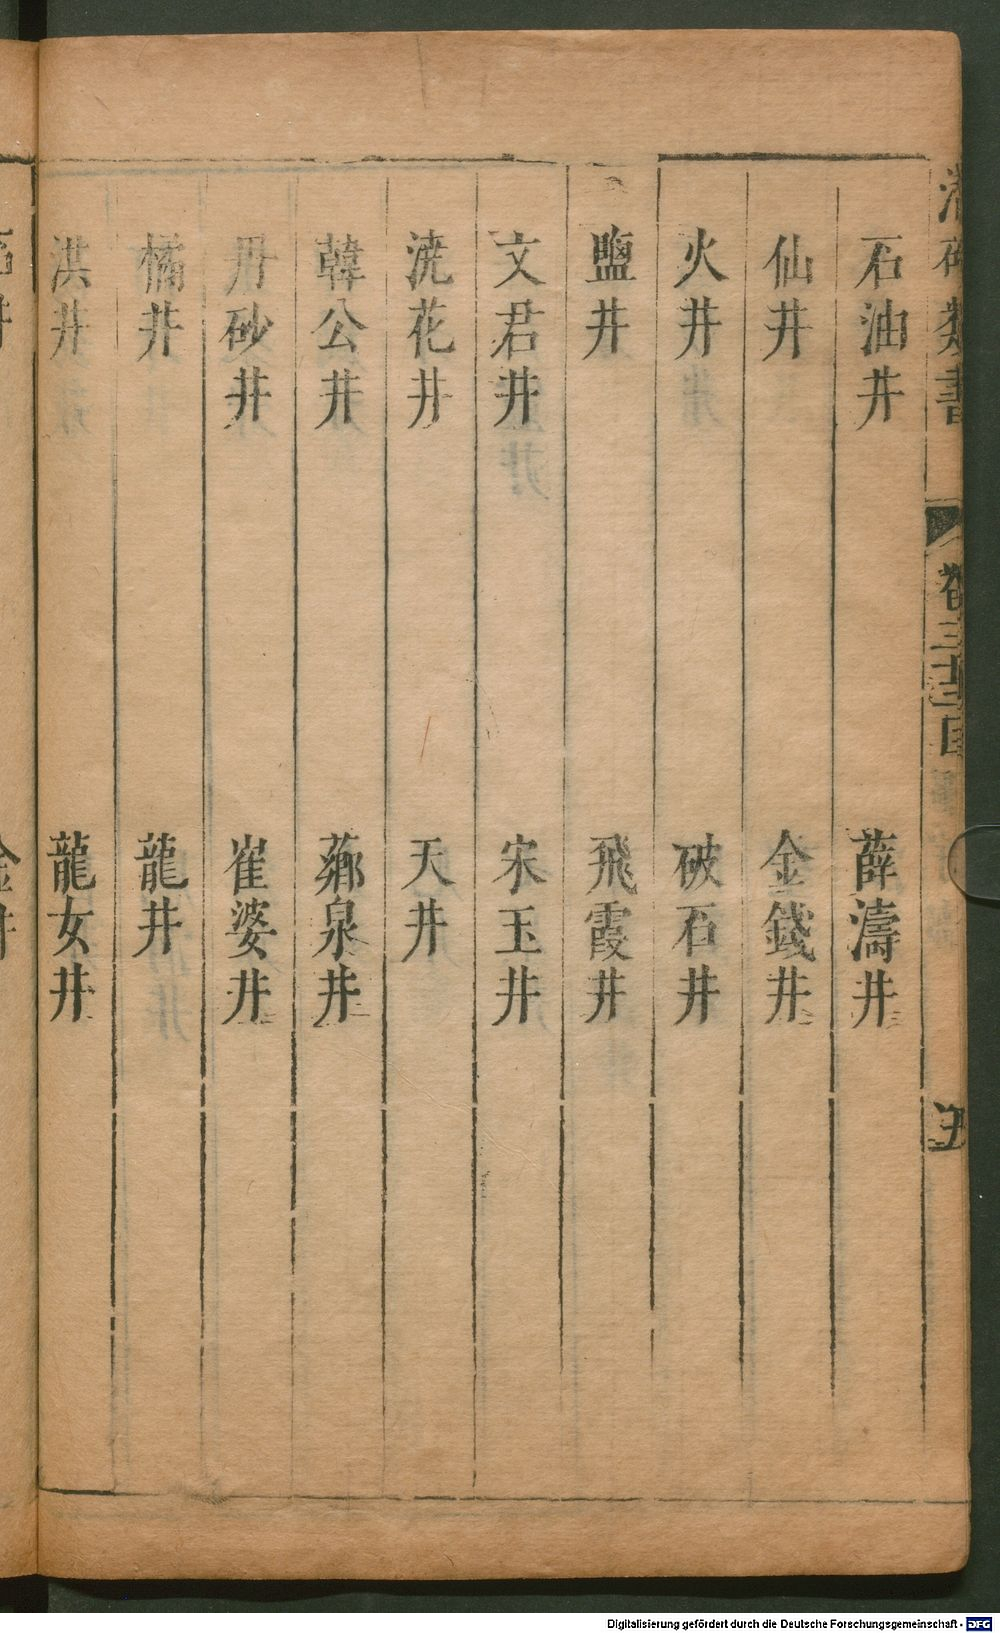 石油井　薛濤井
仙井　金錢井
火井　破石井
鹽井　飛霞井
文君井　宋玉井
浣花井　天井
韓公井　薌泉井
丹砂井　崔婆井
橘井　龍井
洪井　龍女井
Digitalisierung gefördert durch die Deutsche Forschungsgemeinschaft - DFG